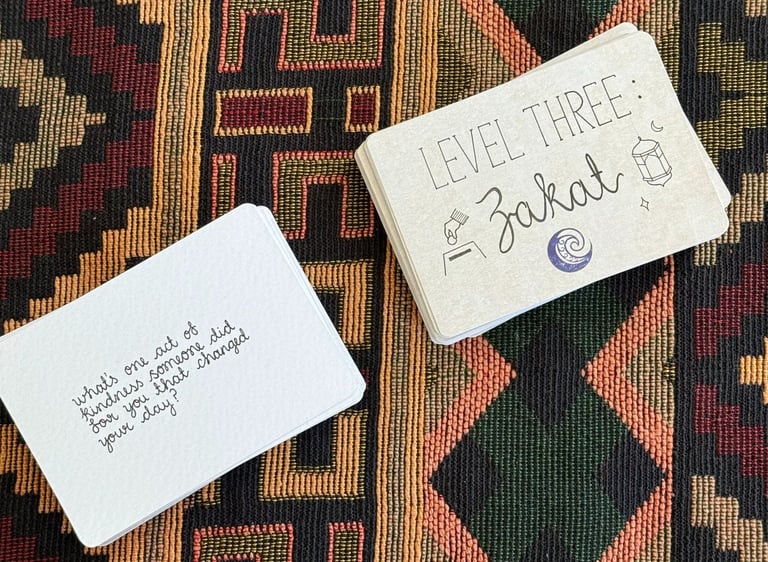 LEVEL THREE:
Zakat
what's one act of
kindness someone did
for you that changed
your day?